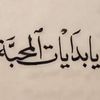 يا بدايات المحبة